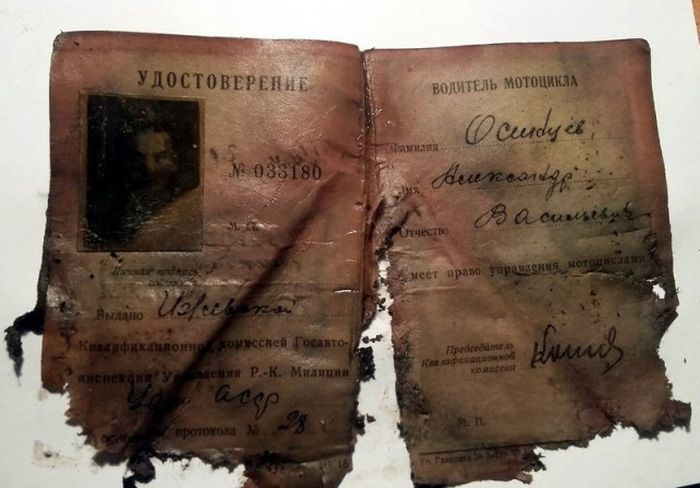 УДОСТОВЕРЕНИЕ
№ 033180
М. П.
Личная подпись
Выдано Ижевской
Квалификационной комиссией Госавто-
инспекции Управления Р.-К. Милиции
АССР
протокола № 28
ВОДИТЕЛЬ МОТОЦИКЛА
Фамилия
Имя Александр
Отчество Васильевич
имеет право управления мотоциклами
Председатель
Квалификационной
комиссии
М. П.